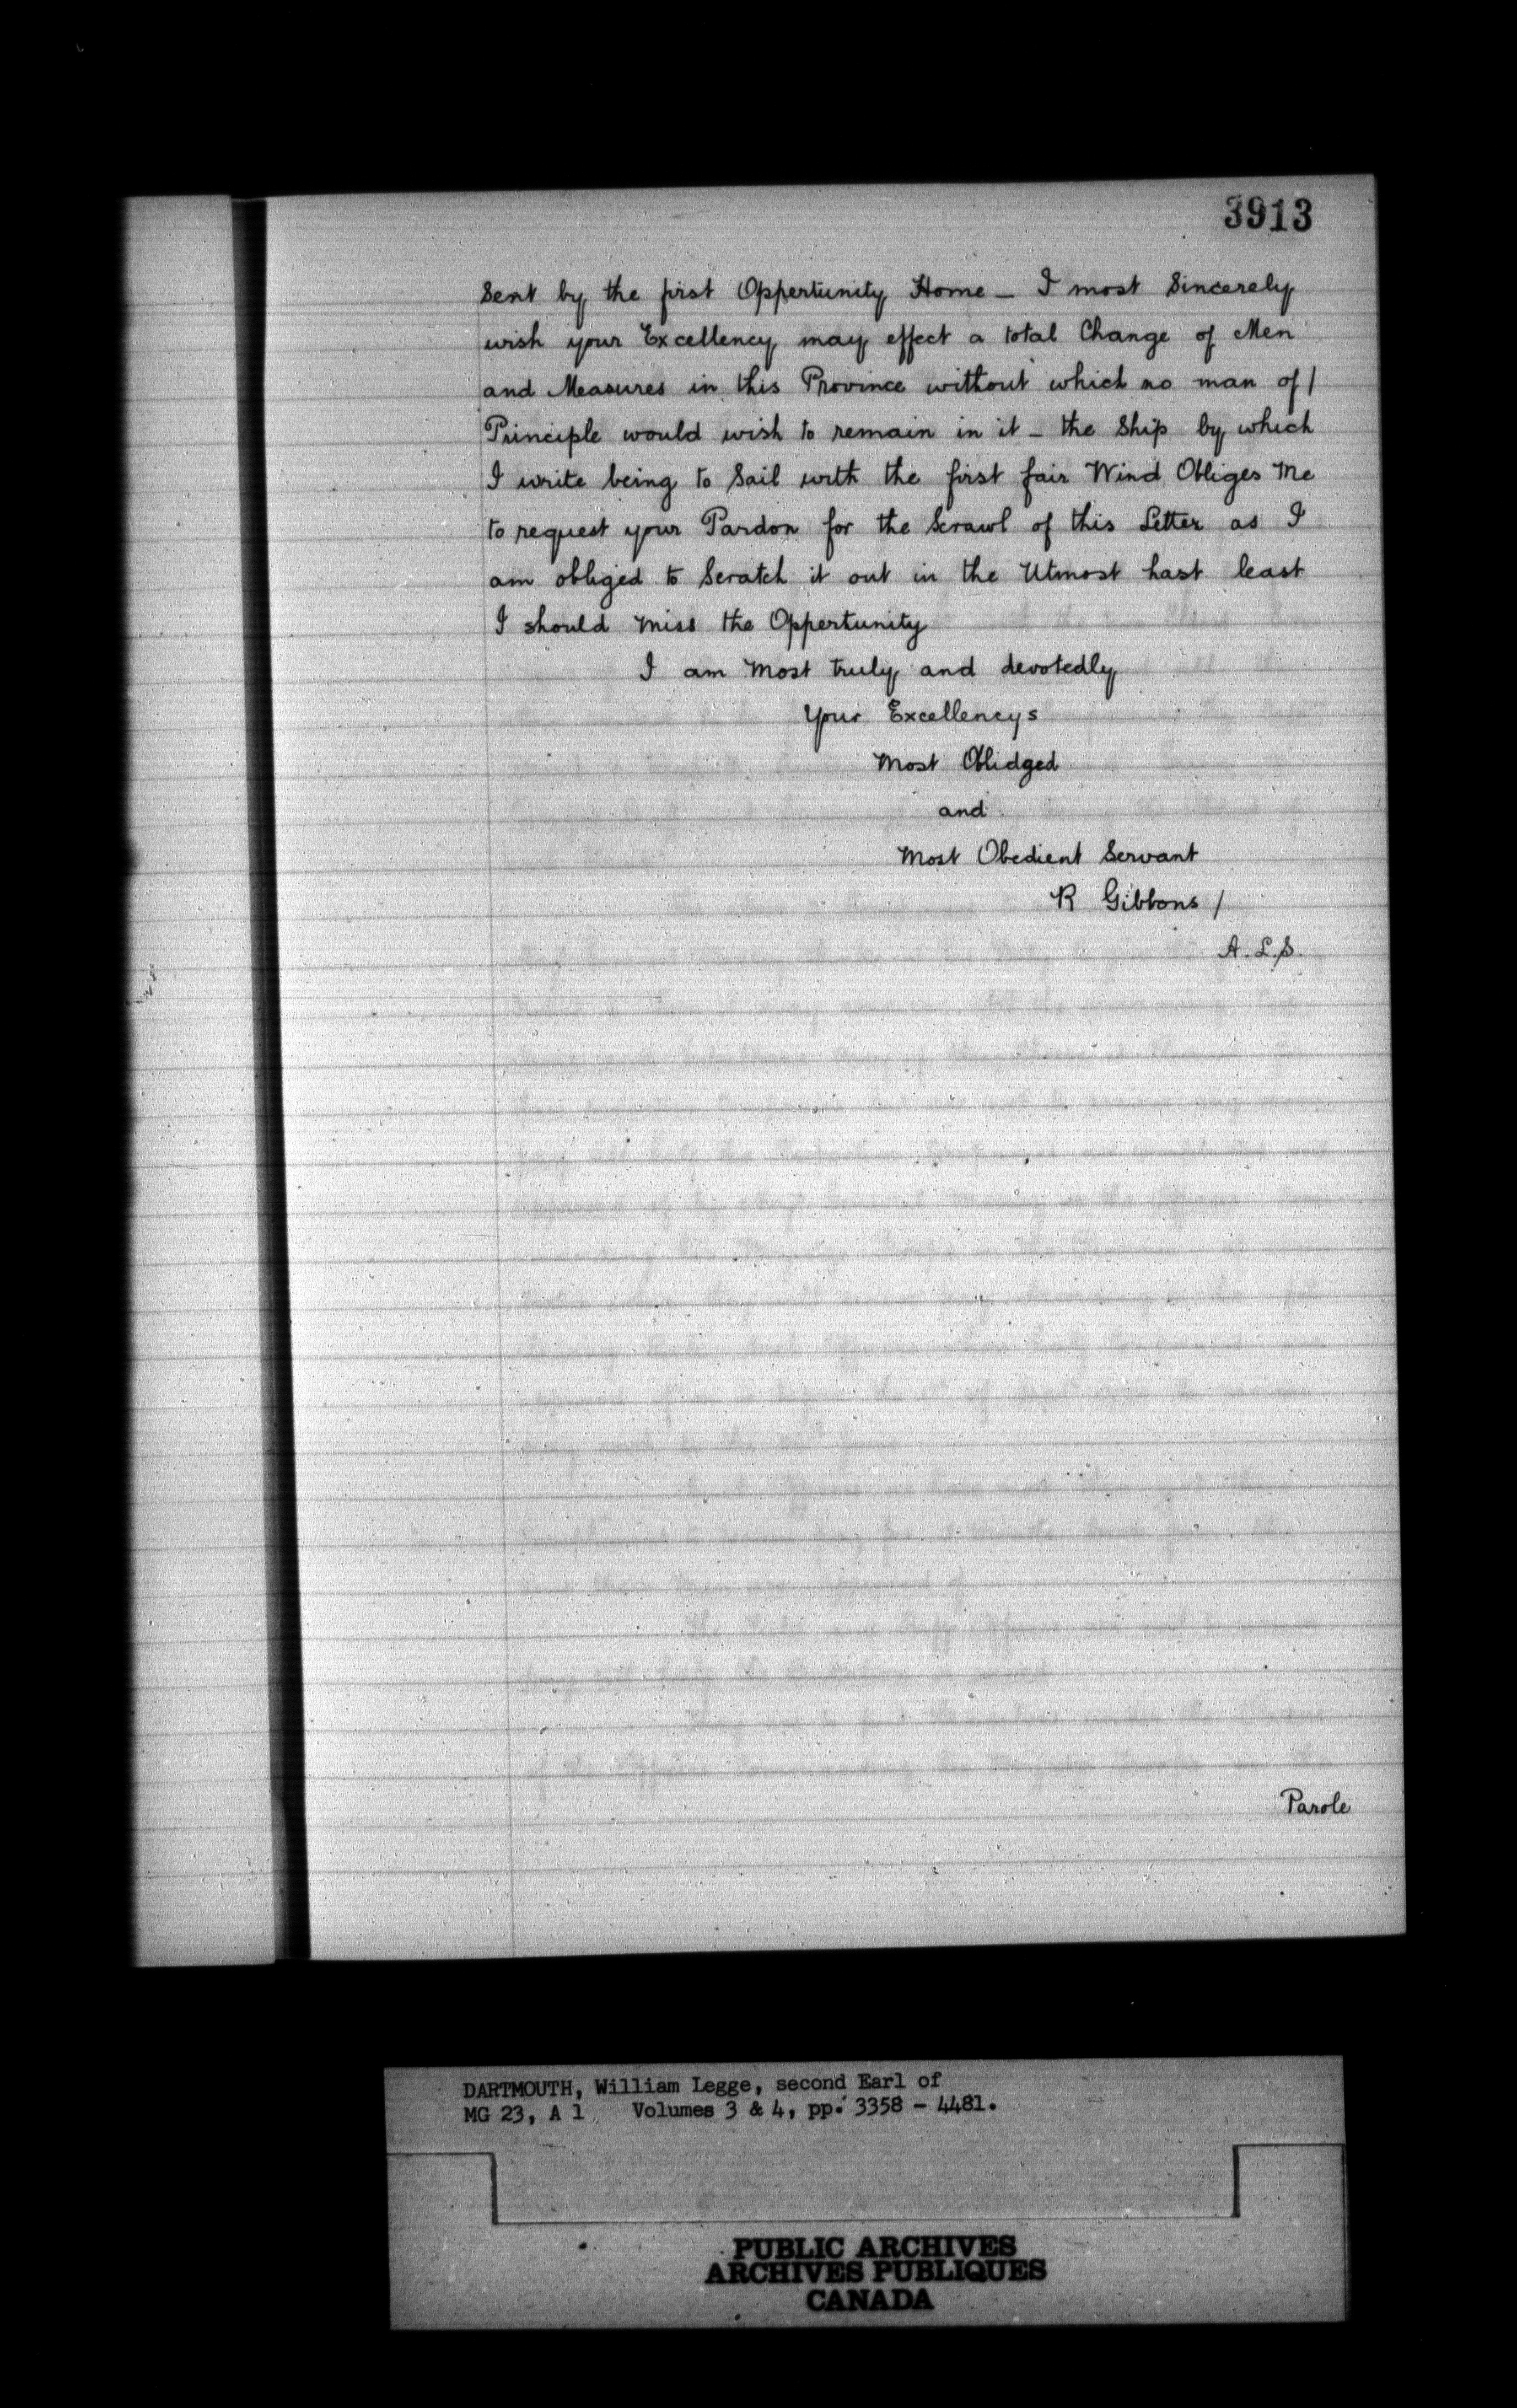 3913
Sent by the first Oppertunity Home _ I most Sincerely
wish your Excellency may effect a total Change of Men
and Measures in this Province without which no man of /
Principle would wish to remain in it _ the Ship by which
I write being to Sail with the first fair Wind Obliges Me
to request your Pardon for the Scrawl of this Letter as I
am obliged to Scratch it out in the Utmost hast least
I should Miss the Oppertunity
I am Most truly and devotedly
Your Excellencys
Most Oblidged
and
Most Obedient Servant
R Gibbons /
A.L.S.
Parole
DARTMOUTH, William Legge, second Earl of
MG 23, A 1 Volumes 3 & 4, pp. 3358 - 4481.
PUBLIC ARCHIVES
ARCHIVES PUBLIQUES
CANADA